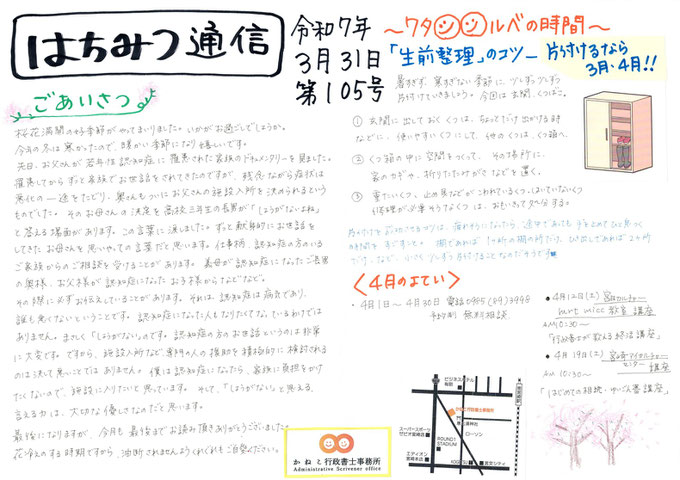 はちみつ通信
令和7年
3月31日
第105号
ごあいさつ
桜花満開の好季節がやってまいりました。いかがお過ごしでしょうか。
今年の冬は寒かったので、暖かい季節になり嬉しいです。
先日、お父さんが若年性認知症に罹患された家族のドキュメンタリーを見ました。
罹患してからずっと家族でお世話をされてきたのですが、残念ながら症状は
悪化の一途をたどり、奥さんもついにお父さんの施設入所を決められるという
ものでした。そのお母さんの決定を高校三年生の長男が「しょうがないよね」
と答える場面があります。この言葉に涙しました。ずっと献身的にお世話を
してきたお母さんを思いやっての言葉だと思います。仕事柄、認知症の方のいる
ご家族からのご相談を受けることがあります。義母が認知症になったご長男
の奥様、お父様が認知症になったお子様からなどなど。
その際に必ずお伝えしていることがあります。それは、認知症は病気であり、
誰も悪くないということです。認知症になった人もなりたくてなっているわけでは
ありません。まさしく「しょうがない」のです。認知症の方のお世話というのは非常
に大変です。ですから、施設入所など、専門の人の援助を積極的に検討される
のは決して悪いことではありません。僕は認知症になったら、家族に負担をかけ
たくないので、施設に入りたいと思っています。そして、「しょうがない」と思える、
言える力は、大切な優しさなのだと思います。
最後になりますが、今月も最後までお読み頂きありがとうございました。
花冷えのする時期ですから、油断されませんようくれぐれもご自愛ください。
～ワタシシルベの時間～
「生前整理」のコツ
片付けるなら
3月・4月!!
暑すぎず、寒すぎない季節に、少しずつ少しずつ
片付けていきましょう。今回は玄関、くつばこ。
① 玄関に出しておくくつは、ちょっとだけ出かける時
などに、使いやすいくつにして、他のくつは、くつ箱へ
② くつ箱の中に空間をつくって、その場所に、
家のカギや、折りたたみかさなどを置く。
③ 重たいくつ、止め具などがこわれているくつ、はいていないくつ
修理が必要そうなくつは、おもいきって処分する。
〈4月のよてい〉
・4月1日～4月30日 電話0985(89)3998
予約制 無料相談
・4月12日(土)
mrt micc 教室 講座
AM10:30～
「行政書士が教える終活講座」
・4月19日(土)
センター 講座
AM10:30～
「はじめての相続・ゆいごん書講座」
ビジネスホテル
駅前
かねこ行政書士事務所
ローソン
スーパースポーツ
ゼビオ宮崎店
ROUND1
STADIUM
エディオン
宮崎本店
KOGETSU
宮交シティ
かねこ行政書士事務所
Administrative Scrivener office